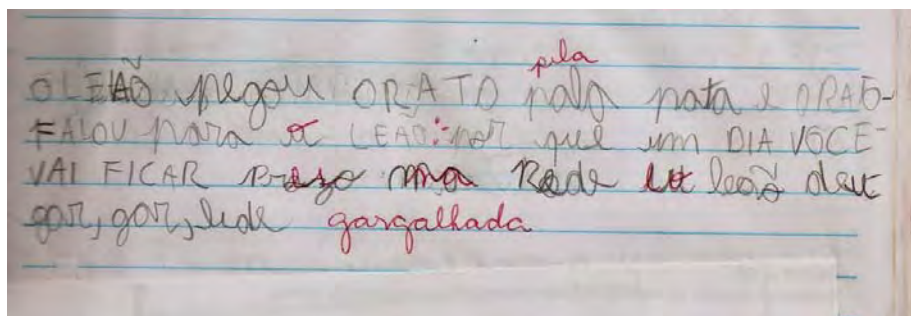 pela
OLEÃO pegou ORATO pala pata e ORATO-
FALOU para o LEÃO: por que um DIA VOCE-
VAI FICAR preso na Rede e o leão deu
gar, gar, lede gargalhada